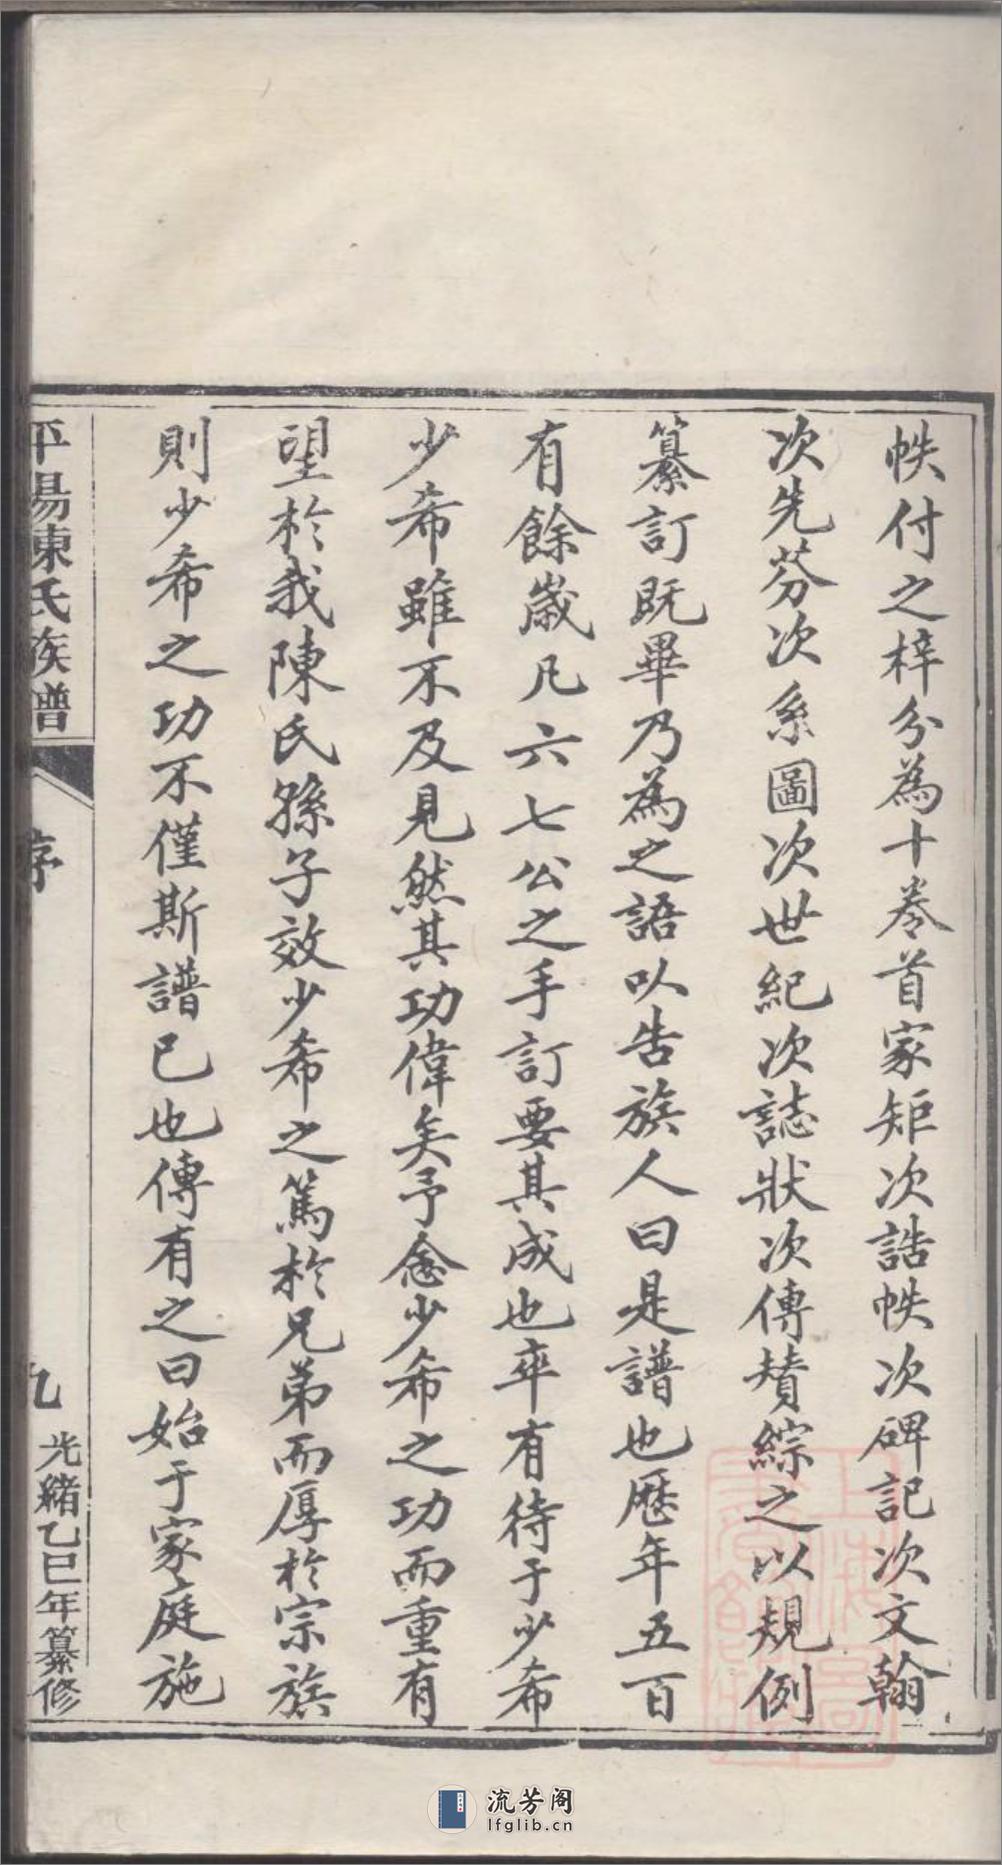 帙付之梓分為十卷首家矩次誥帙次碑記次文翰
次先芬次系圖次世紀次誌狀次傳賛綜之以規例
纂訂既畢乃為之語以告族人曰是譜也歷年五百
有餘歲凡六七公之手訂要其成也卒有待于少希
少希雖不及見然其功偉矣予念少希之功而重有
望於我陳氏孫子效少希之篤於兄弟而厚於宗族
則少希之功不僅斯譜已也傳有之曰始于家庭施
平陽陳氏族譜
序
九
光緒乙巳年纂修
流芳阁
lfglib.cn